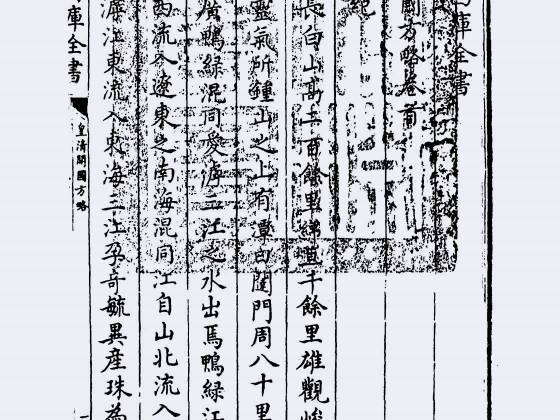 庫全書
國方略卷首
紀
長白山髙二百餘里緜亘千餘里雄觀峻
靈氣所鍾山之上有潭曰闥門周八十里
廣鴨綠混同愛滹三江之水出焉鴨綠江
西流入遼東之南海混同江自山北流入
滹江東流入東海三江孕奇毓異産珠為
庫全書
皇清開國方略